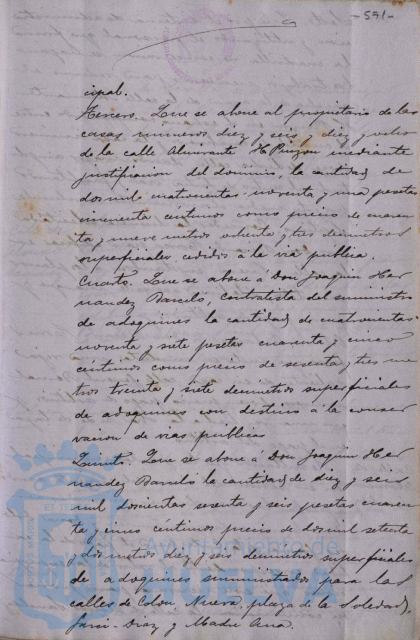 -591-
cipal.
Tercero. Que se abone al propietario de las
casas numeros diez y seis y diez y ocho
de la calle Almirante H. Pinzon mediante
justificacion del dominio, la cantidad de
dos mil cuatrocientas noventa y una pesetas
cincuenta centimos como precio de cuaren
ta y nueve metros ochenta y tres decimetros
superficiales cedidos á la via publica.
Cuarto. Que se abone á Don Joaquin Her
nandez Barcelo, contratista del suministro
de adoquines la cantidad de cuatrocientas
noventa y siete pesetas cuarenta y cinco
centimos como precio de sesenta y tres me
tros treinta y siete decimetros superficiales
de adoquines con destino á la conser
vacion de vias publicas
Quinto. Que se abone á Don Joaquin Her
nandez Barcelo la cantidad de diez y seis
mil doscientas sesenta y seis pesetas cuaren
ta y cinco centimos precio de dos mil setenta
y dos metros diez y seis decimetros superficiales
de adoquines suministrados para las
calles de Colon, Nueva, plaza de la Soledad,
Garci-Diaz y Madre Ana.
Ayuntamiento de
HUELVA